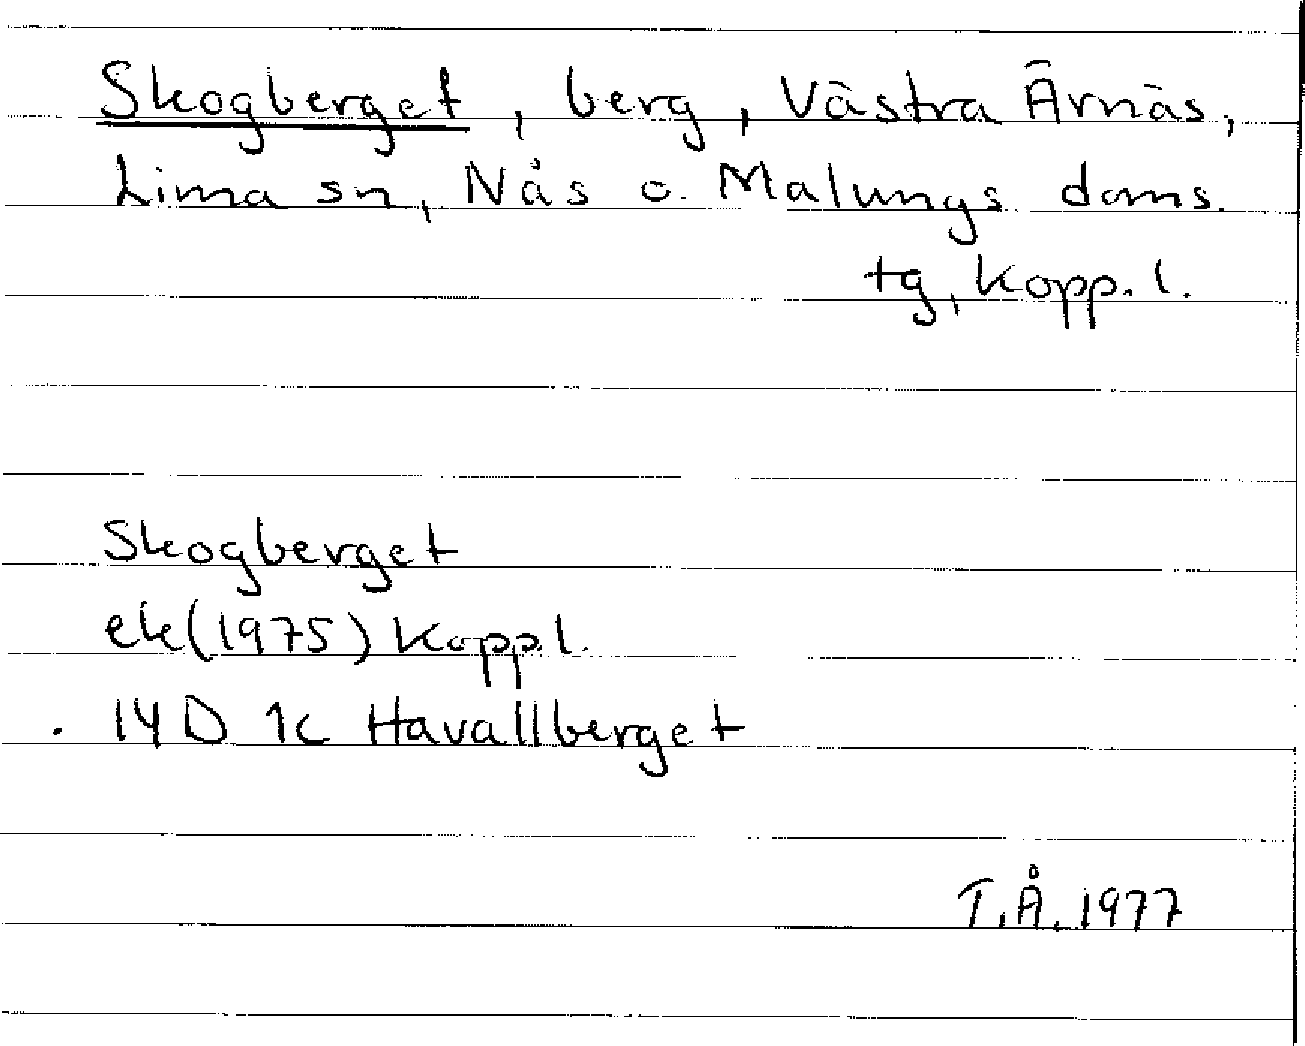 Skogberget, berg, Västra Ärnäs,
Lima sn, Nås o. Malungs doms.
tg, Kopp. l.
Skogberget
ek(1975) Kopp.l.
. 14D 1c Havallberget
T.Å. 1977